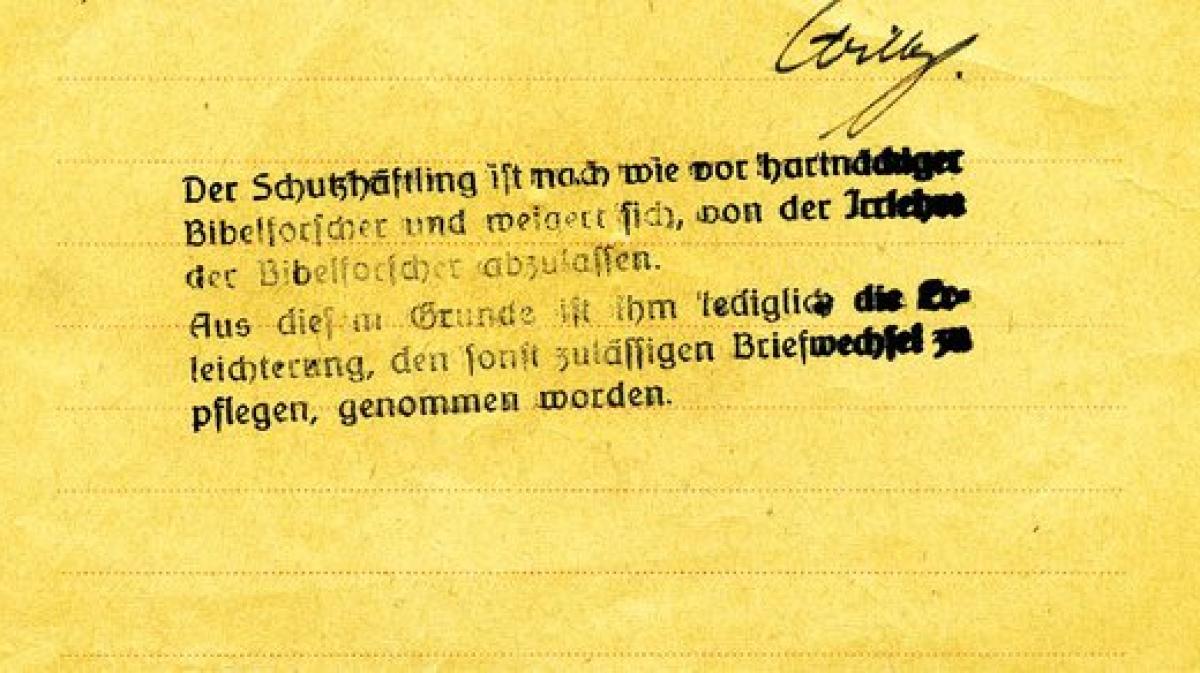 Willy.
Der Schutzhäftling ist nach wie vor hartnäckiger
Bibelforscher und weigert sich, von der Irrlehre
der Bibelforscher abzulassen.
Aus diesem Grunde ist ihm lediglich die Er-
leichterung, den sonst zulässigen Briefwechsel zu
pflegen, genommen worden.